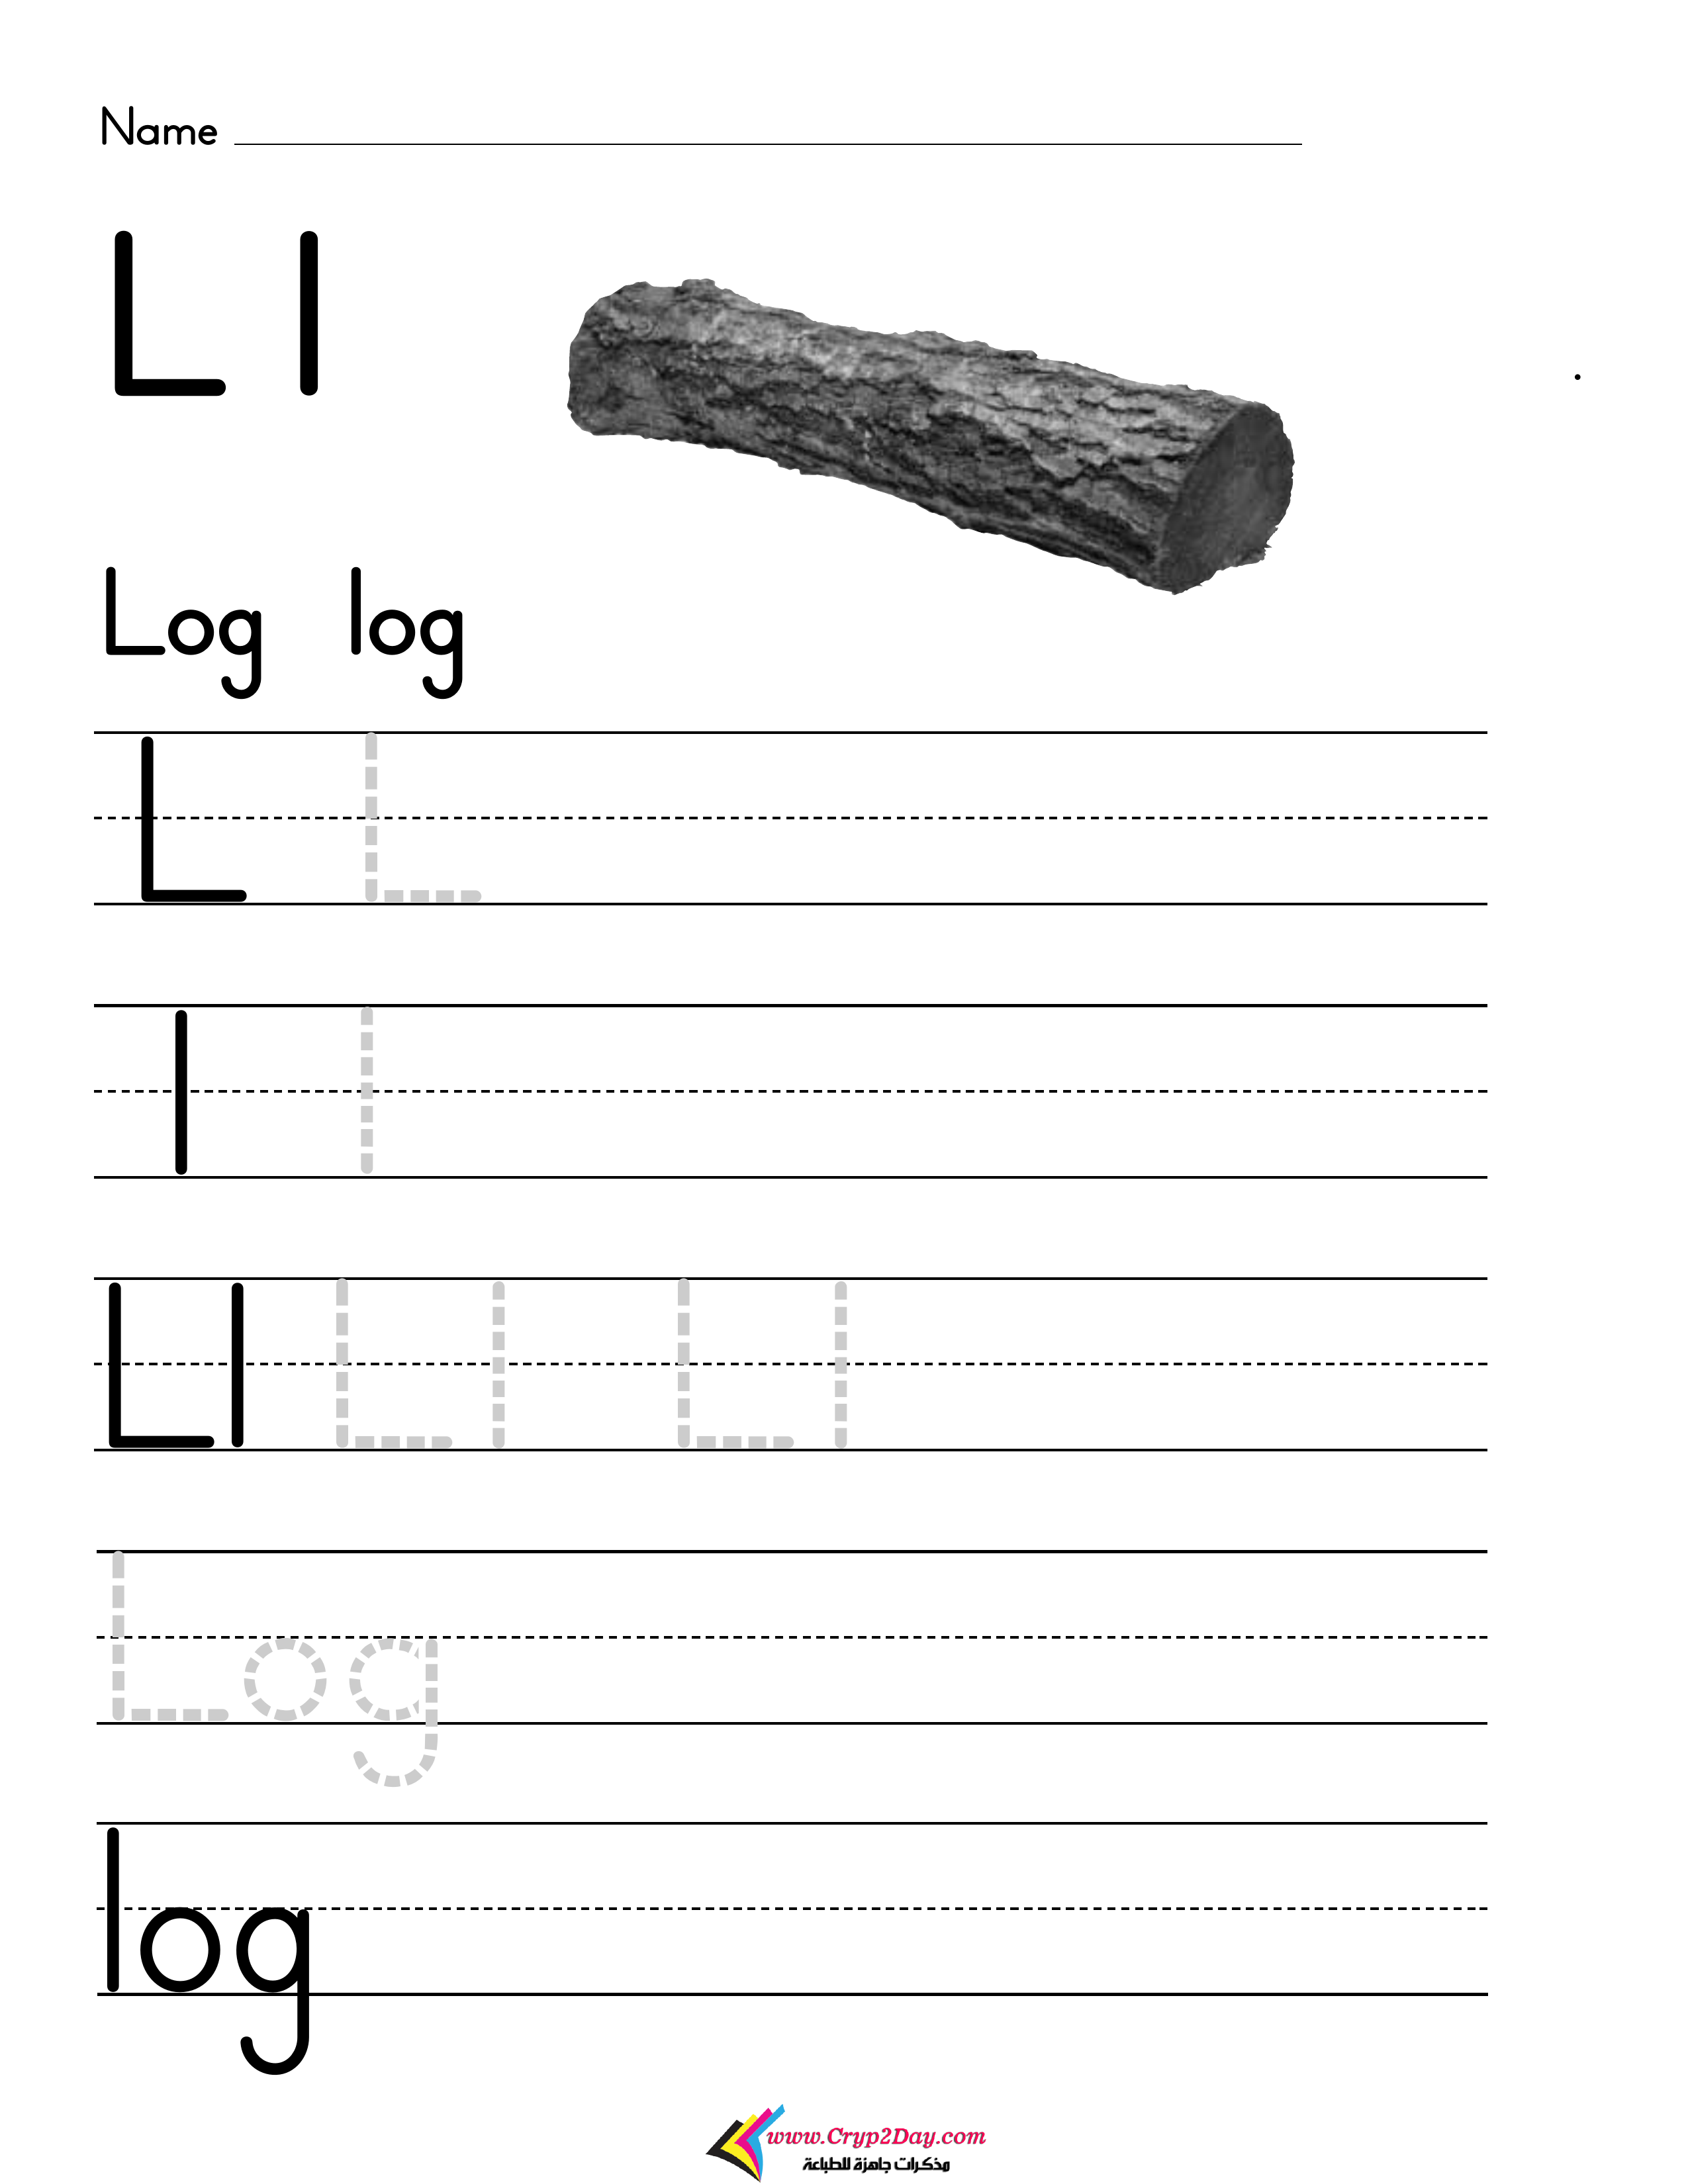 Name
L l
Log log
L L
l l
Ll Ll Ll
Log
log
www.Cryp2Day.com
مذكرات جاهزة للطباعة